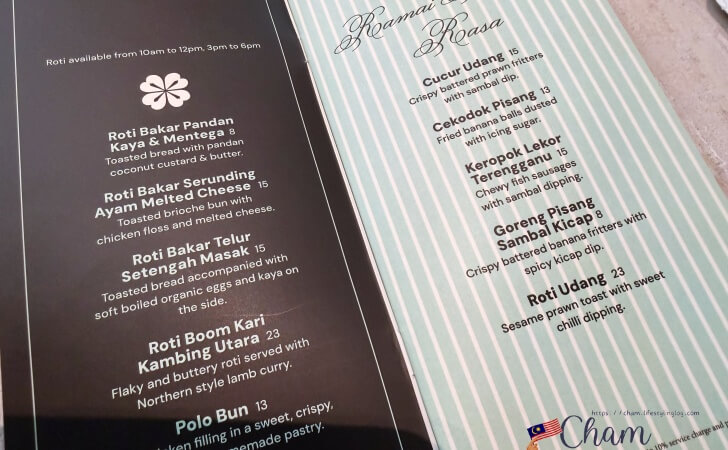 Roti available from 10am to 12pm, 3pm to 6pm
Roti Bakar Pandan
Kaya & Mentega 8
Toasted bread with pandan
coconut custard & butter.
Roti Bakar Serunding
Ayam Melted Cheese 15
Toasted brioche bun with
chicken floss and melted cheese.
Roti Bakar Telur
Setengah Masak 15
Toasted bread accompanied with
soft boiled organic eggs and kaya on
the side.
Roti Boom Kari
Kambing Utara 23
Flaky and buttery roti served with
Northern style lamb curry.
Polo Bun 13
filling in a sweet, crispy,
pastry.
Ramai
Rasa
Cucur Udang 15
Crispy battered prawn fritters
with sambal dip.
Cekodok Pisang 13
Fried banana balls dusted
with icing sugar.
Keropok Lekor
Terengganu 15
Chewy fish sausages
with sambal dipping.
Goreng Pisang
Sambal Kicap 8
Crispy battered banana fritters with
spicy kicap dip.
Roti Udang 23
Sesame prawn toast with sweet
chilli dipping.
https://cham.lifestyinglog.com/
Cham
10% service charge and